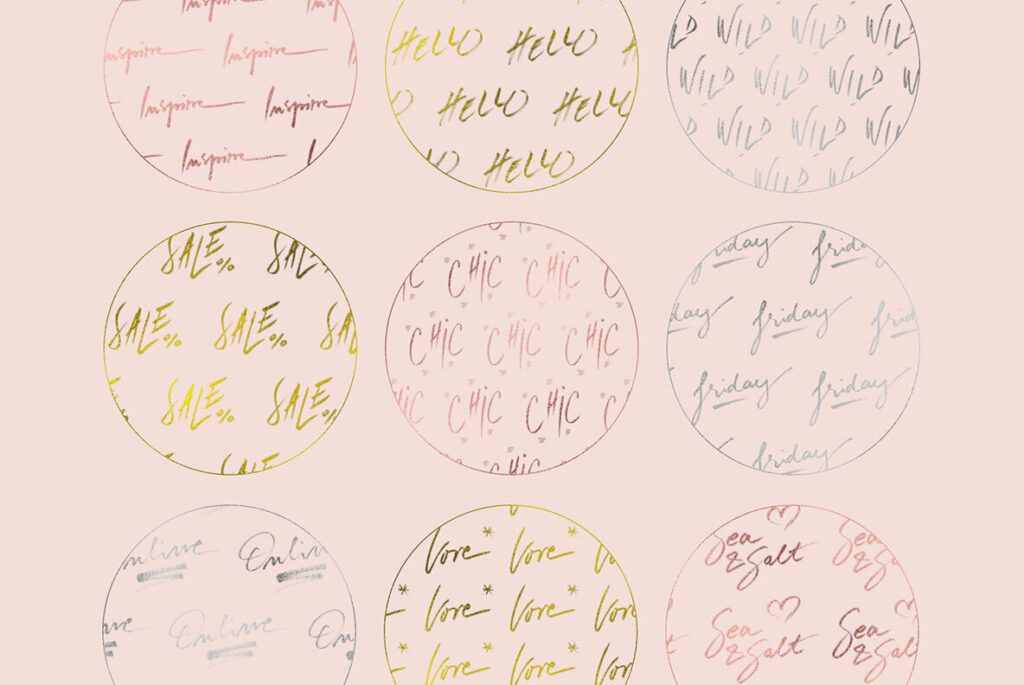 Inspire
Inspire Inspire
Inspire Inspire
Inspire
HELLO HELLO
HELLO HELLO
HELLO
WILD WILD WILD
WILD WILD WILD
WILD WILD WILD
WILD WILD
SALE% SALE
SALE% SALE% SA
SALE% SALE%
SALE
CHIC CHIC
CHIC CHIC CHIC
CHIC CHIC
CHIC
friday friday
friday friday
friday friday
friday
Online Online
Online On
Love * Love
* Love * Love
* Love * Love
Sea Sea
& Salt & Sa
Sea Sea
& Salt & Salt